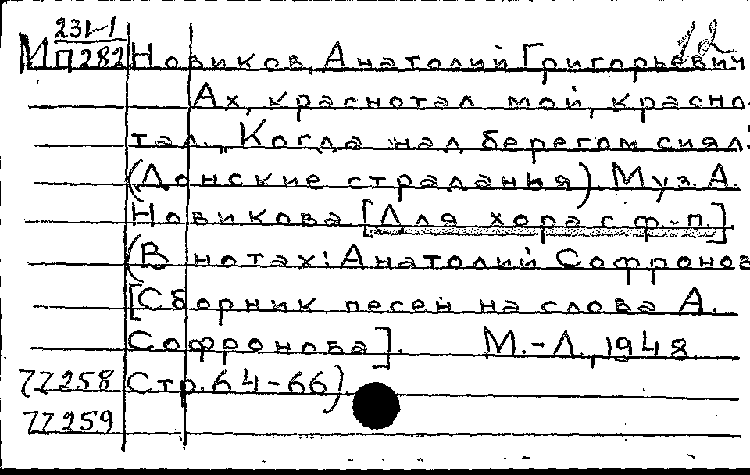 231-1
М П282 Новиков, Анатолий Григорьевич
12
Ах, краснотал мой, красно-
тал... Когда над берегом сиял:
(Донские страданья). Муз. А.
Новикова [Для хора с ф-п.]
(В нотах: Анатолий Софронов
[Сборник песен на слова А.
Софронова]. М.-Л., 1948
77258 Стр. 64-66)
77259